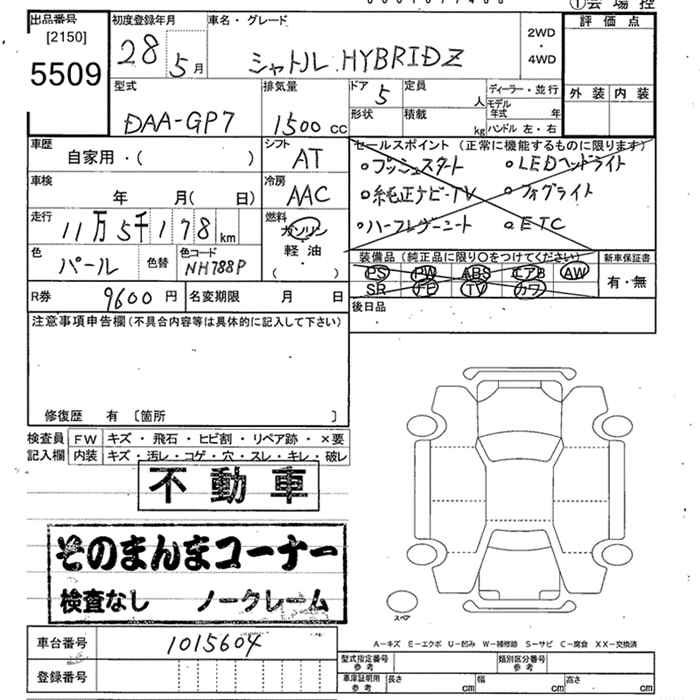 ①会場控
出品番号 [2150] 5509
初度登録年月 28 5月
車名・グレード シャトル HYBRIDZ
2WD ・ 4WD
評価点
外装 内装
型式 DAA-GP7
排気量 1500 cc
ドア 5 定員 人
形状 積載 kg
ディーラー・並行
モデル年式 年
ハンドル 左・右
車歴 自家用・( )
シフト AT
車検 年 月( 日)
冷房 AAC
走行 11万5千178km
燃料 ガソリン 軽油 ( )
色 パール 色替 色コード NH788P
セールスポイント (正常に機能するものに限ります)
○プッシュスタート ○LEDヘッドライト
○純正ナビ-TV ○フォグライト
○ハーフレザーシート ○ETC
装備品(純正品に限り○をつけてください)
PS PW ABS エアB AW
SR ナビ TV カワ
新車保証書 有・無
R券 9600円 名変期限 月 日
後日品
注意事項申告欄(不具合内容等は具体的に記入して下さい)
修復歴 有 〔箇所 〕
検査員記入欄
FW キズ・飛石・ヒビ割・リペア跡・×要
内装 キズ・汚レ・コゲ・穴・スレ・キレ・破レ
不動車
そのまんまコーナー
検査なし ノークレーム
スペア
車台番号 1015604
登録番号
A-キズ E-エクボ U-凹み W-補修跡 S-サビ C-腐食 XX-交換済
型式指定番号 参考 類別区分番号 参考
車庫証明用 参考 長さ cm 幅 cm 高さ cm